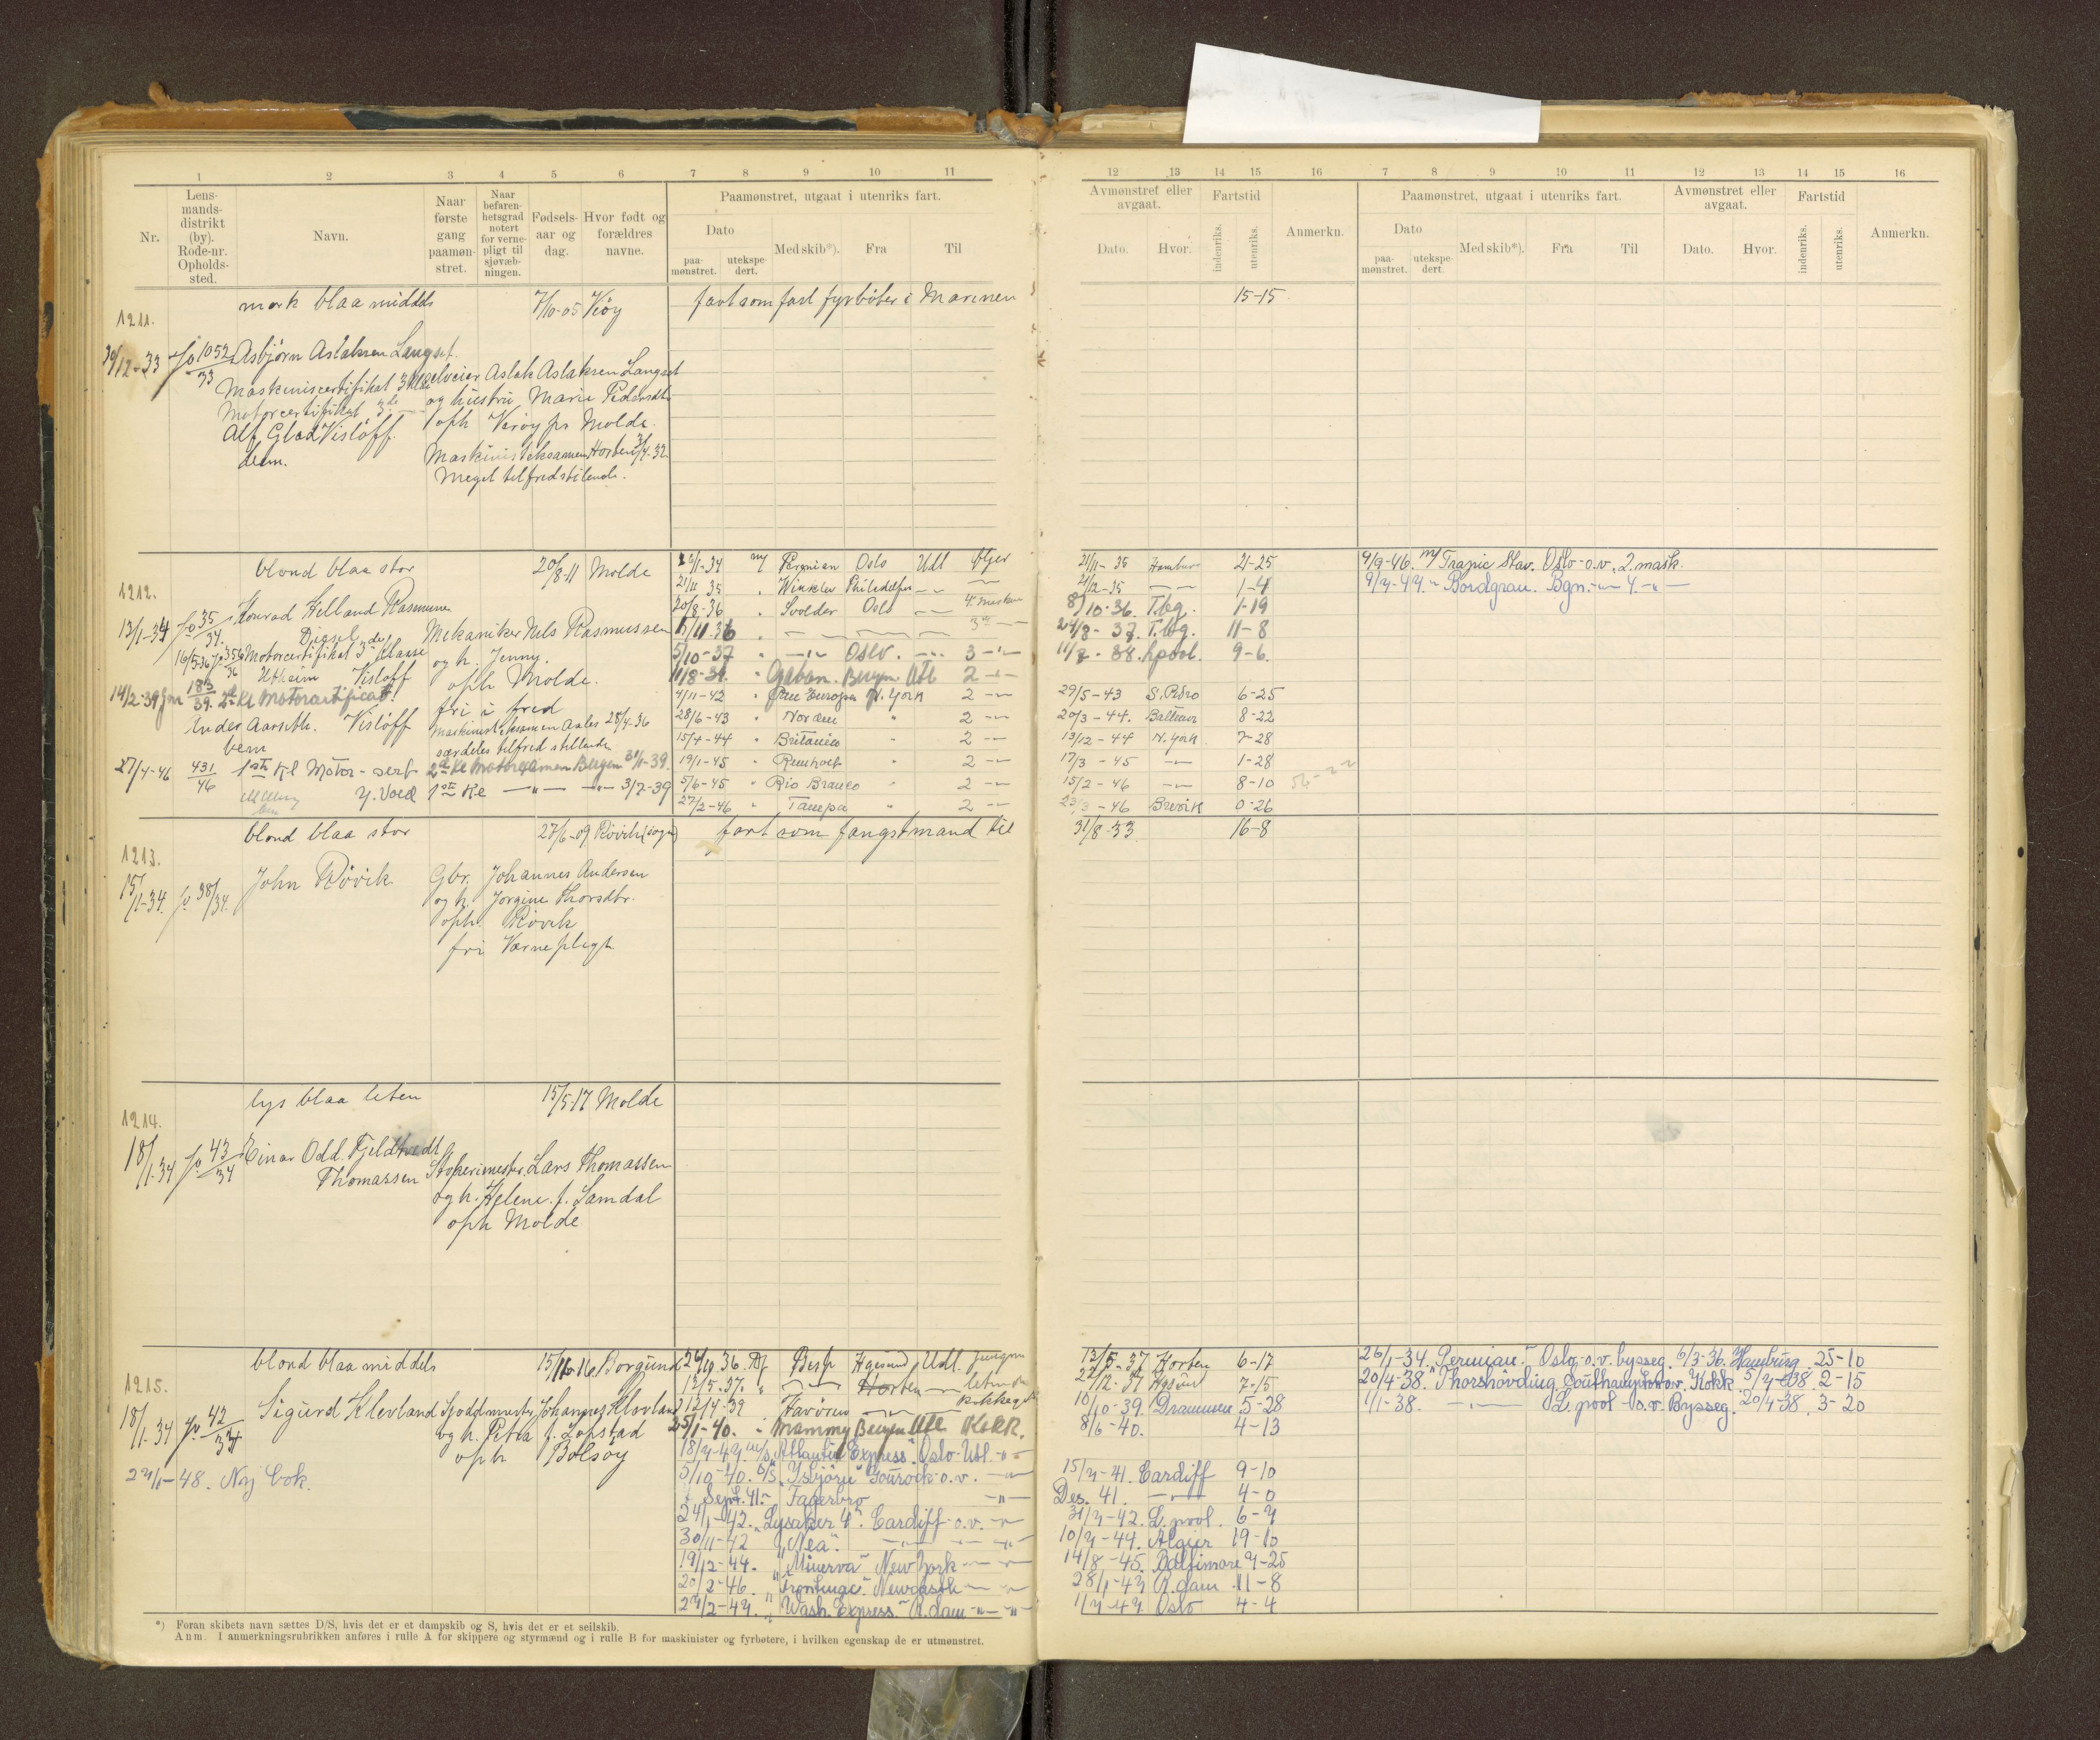 1 2 3 4 5 6 7 8 9 10 11
Nr.
Lens-
mands-
distrikt
(by).
Rode-nr.
Opholds-
sted.
Navn.
Naar
første
gang
paamøn-
stret.
Naar
befaren-
hetsgrad
notert
for verne-
pligt til
sjøvæb-
ningen.
Fødsels-
aar og
dag.
Hvor født og
forældres
navne.
Paamønstret, utgaat i utenriks fart.
Dato
paa-
mønstret.
utekspe-
dert.
Med skib*).
Fra
Til
1211.
mørk blaa middels 7/10-05 Veøy fart som fast fyrbøter i Marinen
30/12-33 Jo 1052/33 Asbjørn Aslaksen Langset
Maskinistcertifikat 3 kl. selveier Aslak Aslaksen Langset
Motorcertifikat 3de og hustru Marie Pedersdtr
Alf Glad Visløff oph Veøy pr Molde.
dem. Maskinisteksamen Horten 3/7-32
Meget tilfredstilende.
1212.
blond blaa stor 20/8-11 Molde
13/1-34 Jo 35/34. Konrad Helland Rasmussen
Diesel
16/5-36 Jo 356/36 Motorcertifikat 3de klasse
Utheim Visløff
Mekaniker Nils Rasmussen
og h. Jenny.
oph Molde.
14/2-39 Jnr 183/39. 2den kl Motorcertifikat.
fri i fred
Ander Aarseth. Visløff
Maskinisteksamen Aales 28/4-36
særdeles tilfredstillende
bem
27/4-46 431/46 1ste kl Motor-sert. 2d kl Motorexamen Bergen 31/1-39.
Y. Vold 1ste kl —"— —"— 3/7-39
2/11-34 M/ Permian Oslo Utl Øljer
21/11 35 " Winkler Philedelfia —
20/8-36 " Svolder Oslo — 4. Maskin
11/11-36 " — — — 3die —
5/10-37 " —"— Oslo. —"— 3 —"—
11/8-39. " Gabon. Bergen Utl 2 —
4/11-42 " Pan Europa N. York 2 —
28/6-43 " Nordm " 2 —
15/4-44 " Britanico " 2 —
19/1-45 " Reinholt " 2 —
5/6-45 " Rio Branco " 2 —
27/2-46 " Tampa " 2 —
1213.
blond blaa stor 27/6-09 Røvik (sogn) fart som fangstmand til
15/1-34. Jo 38/34. John Røvik. Gbr. Johannes Andersen
og h. Jorgine Thorsdtr.
oph. Røvik
fri Værneplegt.
1214.
lys blaa liten 15/5-17 Molde
18/1-34 Jo 43/34 Einar Odd Fjeldtvedt
Thomassen Stokerimester Lars Thomassen
og h. Helene f. Samdal
oph Molde
1215.
blond blaa middels 15/10-16 Borgund
18/1-34 Jo 42/34 Sigurd Klevland Johannes Klevland
og h. Petra f. Lopstad
oph Bolsøy
27/1-48. Ny bok.
26/10 36. D/ Besp Hgesund Utl. Jungm
12/5-37. " — Horten — letm
12/4-39 Havørn —
25/1-40. " Mammy Bergen Utl Kokk.
18/7-47. m/s "Atlantic Express". Oslo-Utl. -"-
5/10-40. D/S "Isbjørn" Gourock-o.v. —"—
Sept. 41.- "Fagerbro —"—
24/1-42. "Lysaker V". Cardiff-o.v. —
30/11-42 "Nea". —"— —
19/12-44. "Minerva" New York —
20/2-46. "Frontenac". Newcastle —
27/2-47. "Wash. Express." R.dam -"-
*) Foran skibets navn sættes D/S, hvis det er et dampskib og S, hvis det er et seilskib.
Anm. I anmerkningsrubrikken anføres i rulle A for skippere og styrmænd og i rulle B for maskinister og fyrbøtere, i hvilken egenskap de er utmønstret.
12 13 14 15 16 7 8 9 10 11 12 13 14 15 16
Avmønstret eller
avgaat.
Dato. Hvor.
Fartstid
indenriks.
utenriks.
Anmerkn.
Paamønstret, utgaat i utenriks fart.
Dato
paa-
mønstret.
utekspe-
dert.
Med skib*). Fra Til
Avmønstret eller
avgaat.
Dato. Hvor.
Fartstid
indenriks.
utenriks.
Anmerkn.
15-15
21/11-35 Hamburg 21-25
21/12-35 — 1-4
8/10-36. T.bg. 1-19
24/8-37. T.bg. 11-8
11/7-38. Lpool. 9-6.
29/5-43 S. Pedro 6-25
20/3-44. Baltimore 8-22
13/12-44 N. York 7-28
17/3-45 — 1-28
15/2-46 — 8-10
23/3-46 Brevik 0-26
9/9-46. M/ Trajnic Stav. Oslo-o.v. 2. mask.
9/7-47. " Bordgran. Bgn. -"- 4. -"-
31/8-33 16-8
12/5-37 Horten 6-17
22/12-37 Hgsund 7-15
10/10-39. Drammen 5-28
8/6-40. 4-13
15/7-41. Cardiff 9-10
Des. 41. —"— 4-0
31/7-42. L.pool. 6-7
10/7-44. Algier 19-10
14/8-45. Baltimore 7-25
28/1-47 R.dam 11-8
1/7-47. Oslo 4-4
26/1-34. "Permian." Oslo-o.v. bysseg. 6/3-36. Hamburg. 25-10
20/4-38. "Thorshövding. Southampton-o.v. Kokk 5/7-38. 2-15
1/1-38. —"— L.pool-o.v. Bysseg. 20/4-38. 3-20